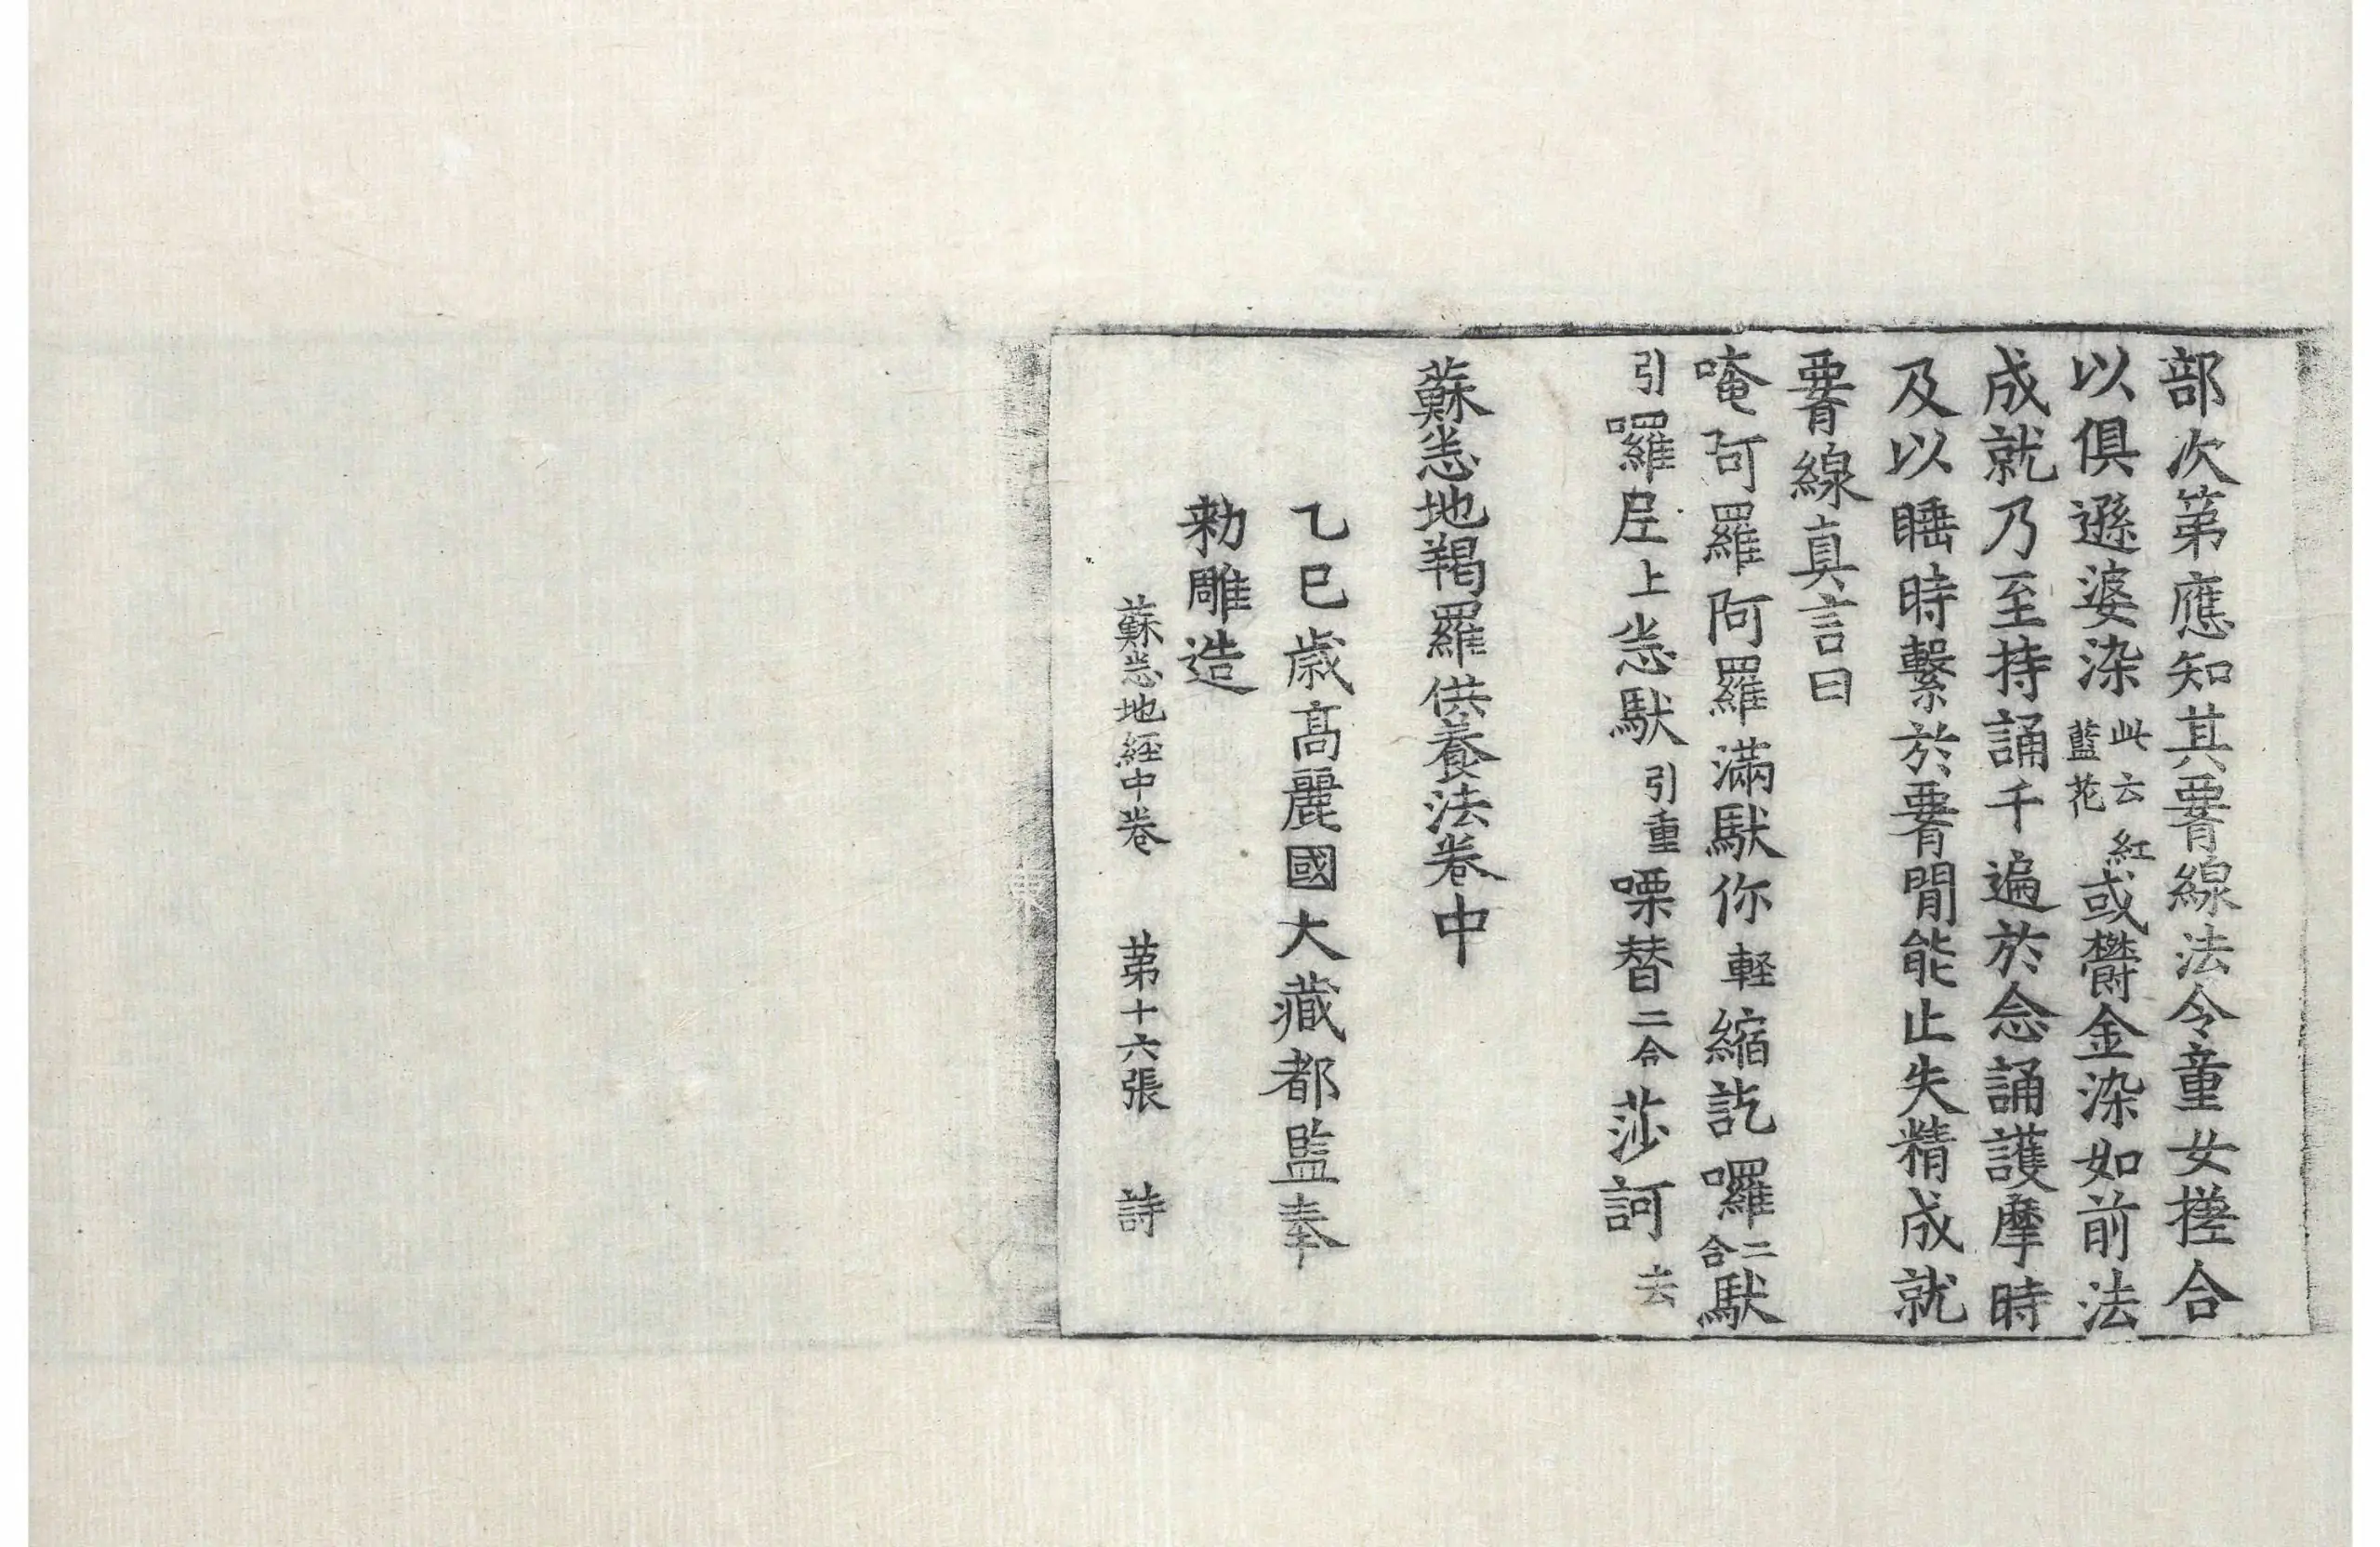 部次第應知其𦝫線法令童女搓合
以俱遜婆染此云紅藍花或欝金染如前法
成就乃至持誦千遍於念誦護摩時
及以睡時繫於𦝫閒能止失精成就
𦝫線真言曰
唵阿羅阿羅滿馱你輕縮訖囉二合馱
引囉上㤙馱引重㗚替二合莎訶去
蘇㤙地羯羅供養法卷中
乙巳歲高麗國大藏都監奉
勑雕造
蘇㤙地經中卷 苐十六張 詩